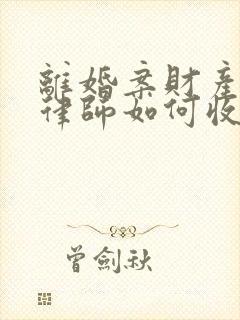 離婚案財產
律師如何收
曾劍秋